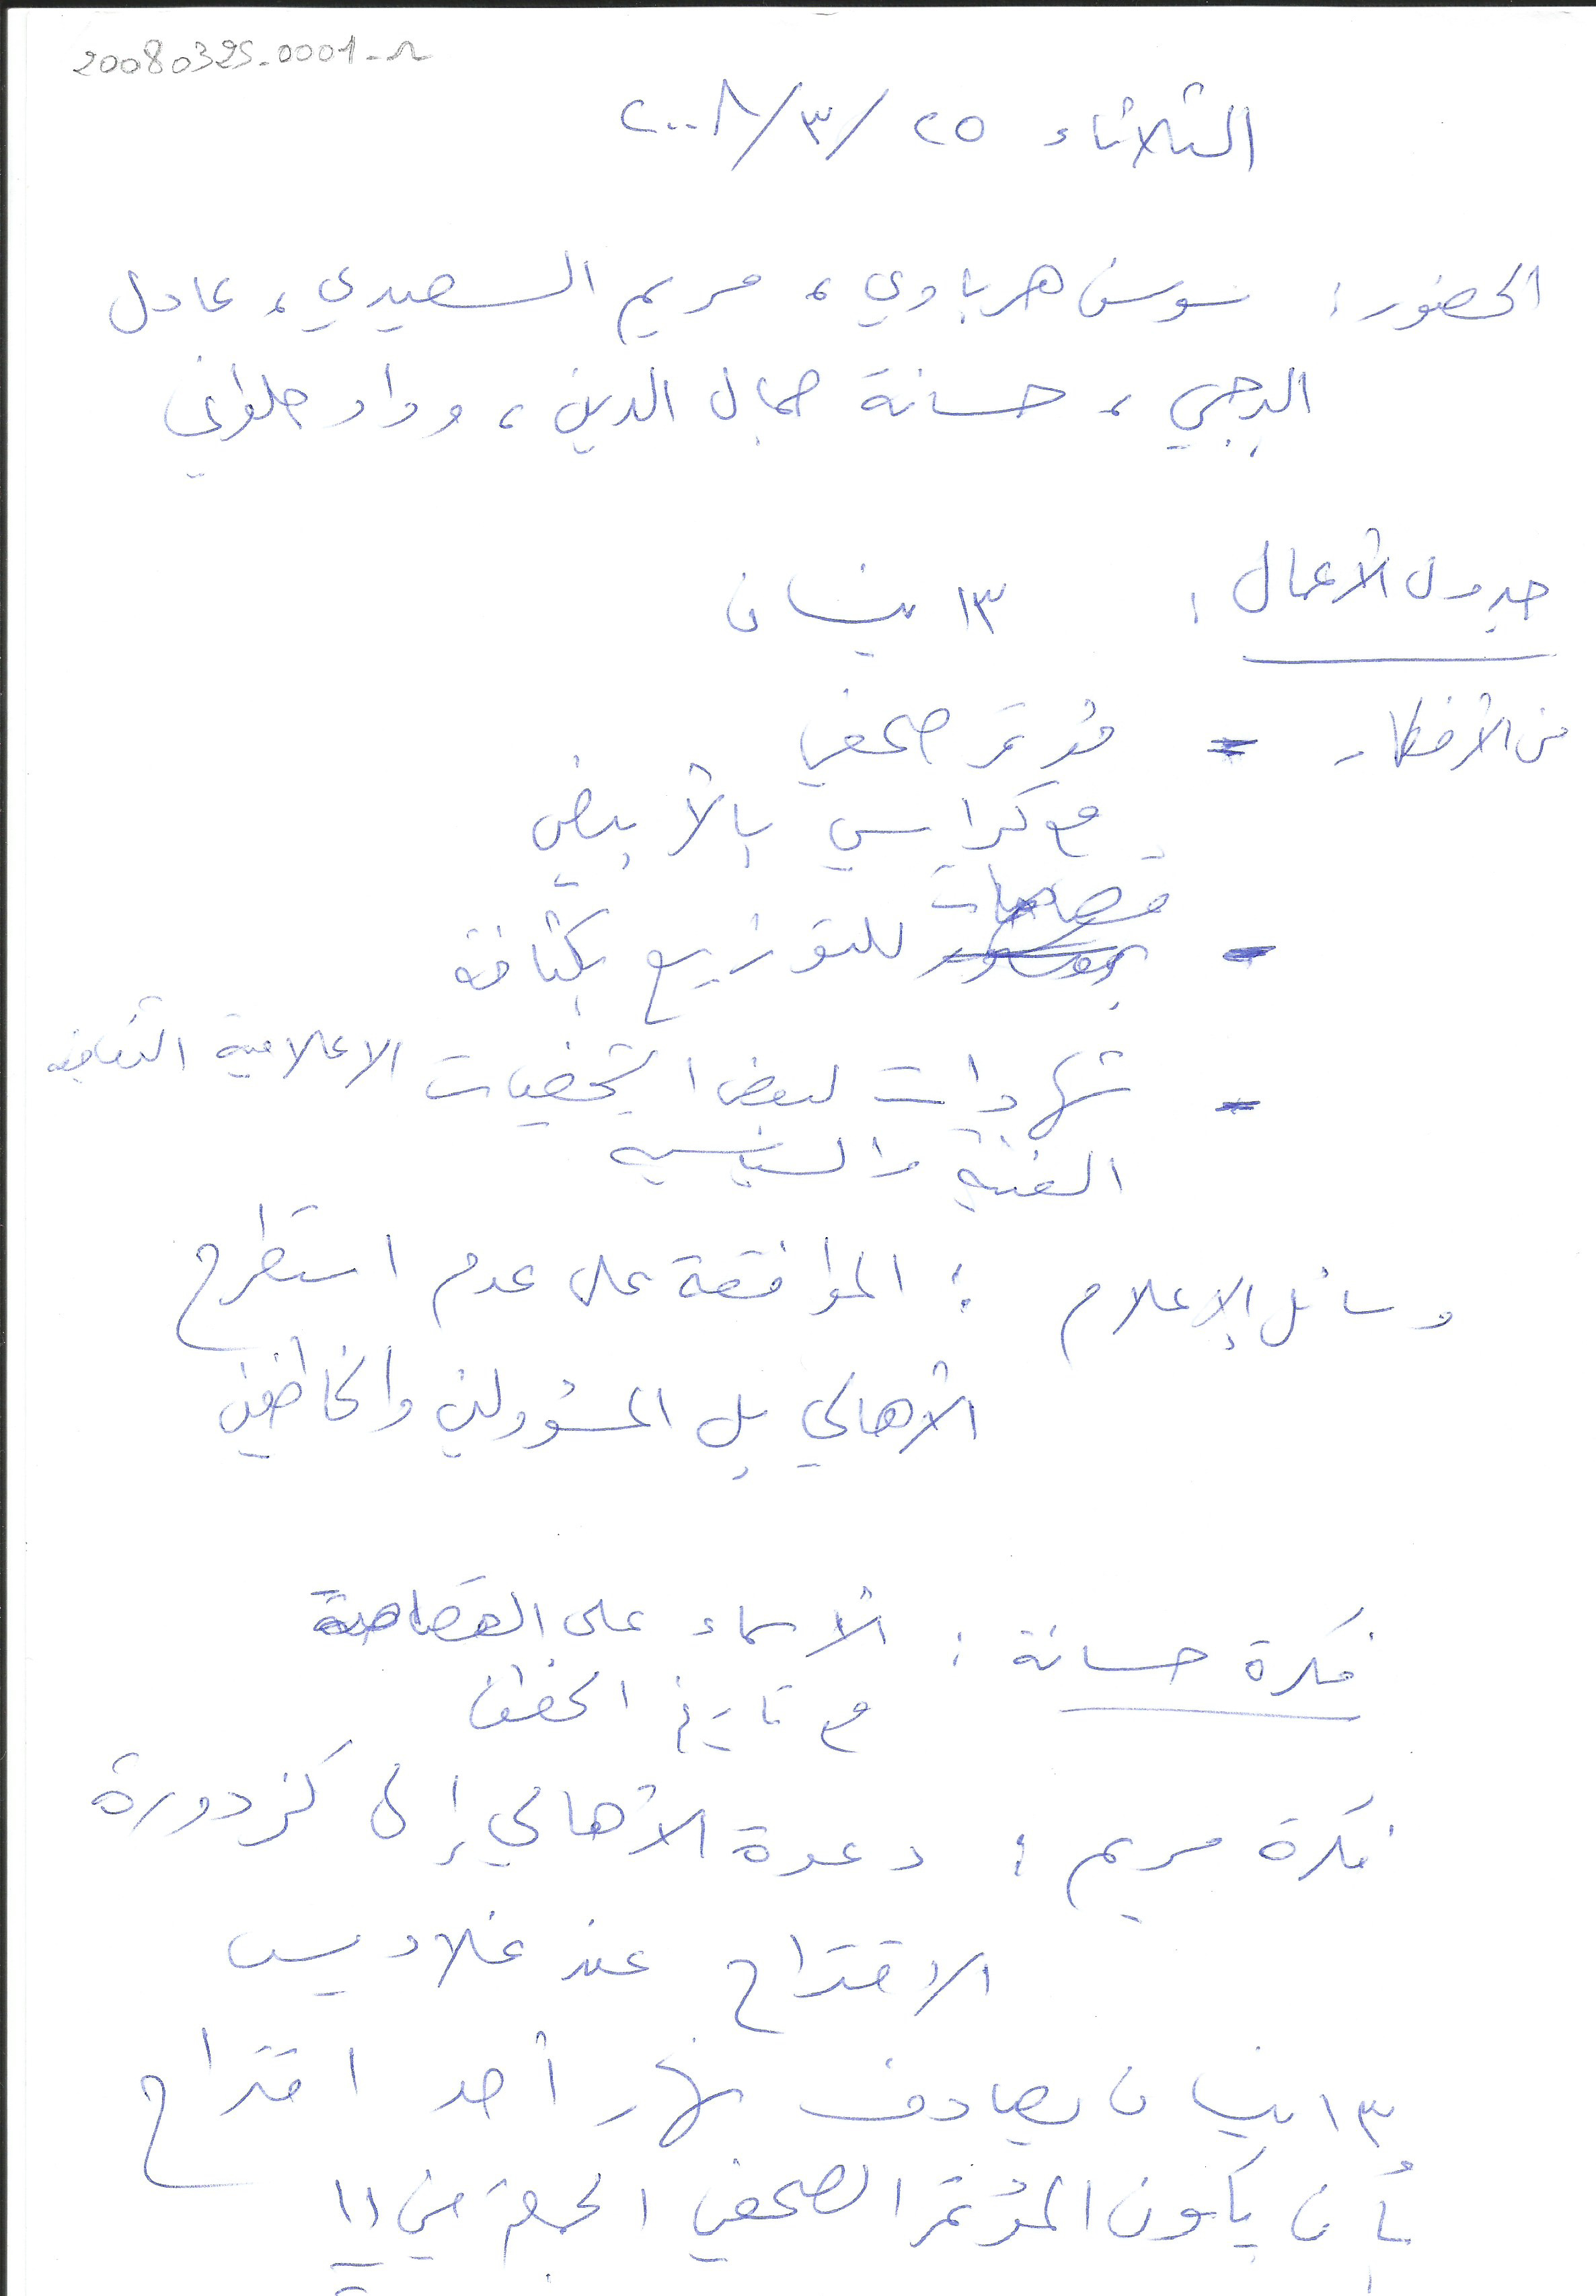 20080325-0001-م
الثلاثاء ٢٥ /٣/ ٢٠٠٨
الحضور: سوسن هرباوي، مريم السعيدي، عادل
البرجي، حسانة جمال الدين، وداد حلواني
جدول الأعمال: ١٣ نيسان
من الأفكار - مؤتمر صحفي
مع كراسي بالأبيض
- قصاصات للتوزيع بكثافة
- شهادات لبعض الشخصيات الاعلامية الثقافية
الفنية والسياسية
وسائل الإعلام: الموافقة على عدم استطرح
الأهالي بل المسؤولين والخاطفين
فكرة حسانة: الأسماء على القصاصة
مع تاريخ الخطف
فكرة مريم: دعوة الأهالي إلى كزدورة
الاقتراح عند غلاديس
١٣ نيسان يصادف نهار أحد اقتراح
بأن يكون المؤتمر الصحفي الجمعة في ١١